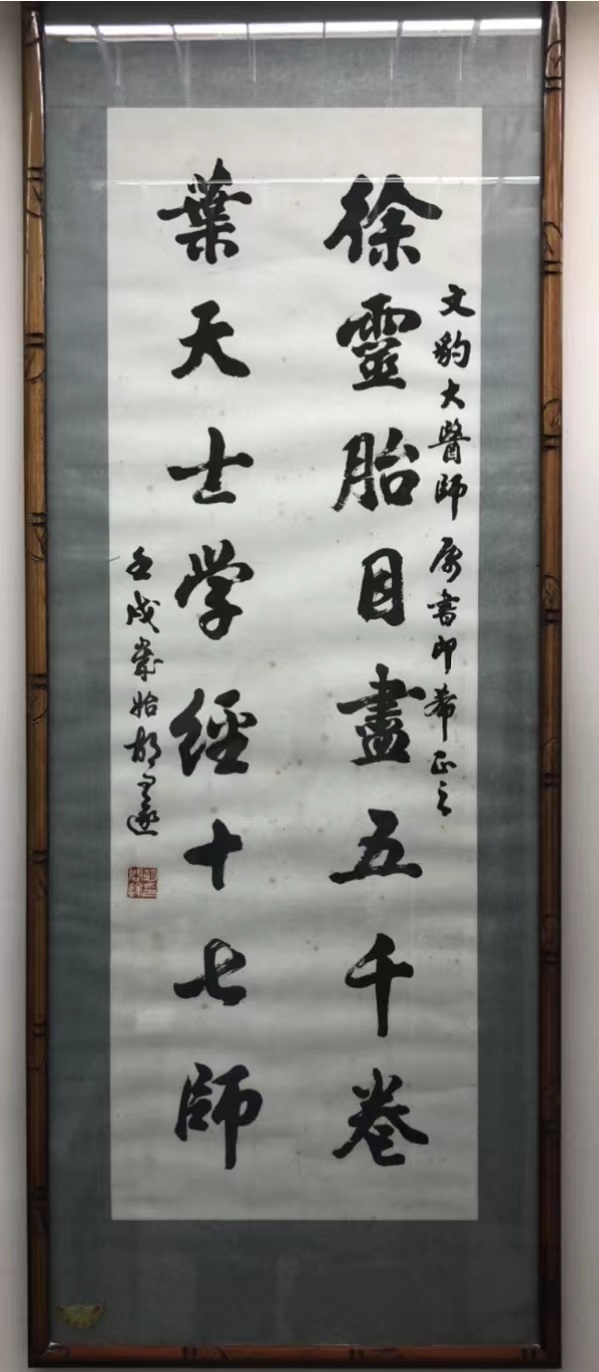 文豹大醫師屬書即希正之
徐靈胎目盡五千卷
葉天士学經十七師
壬戌歲始胡问遂